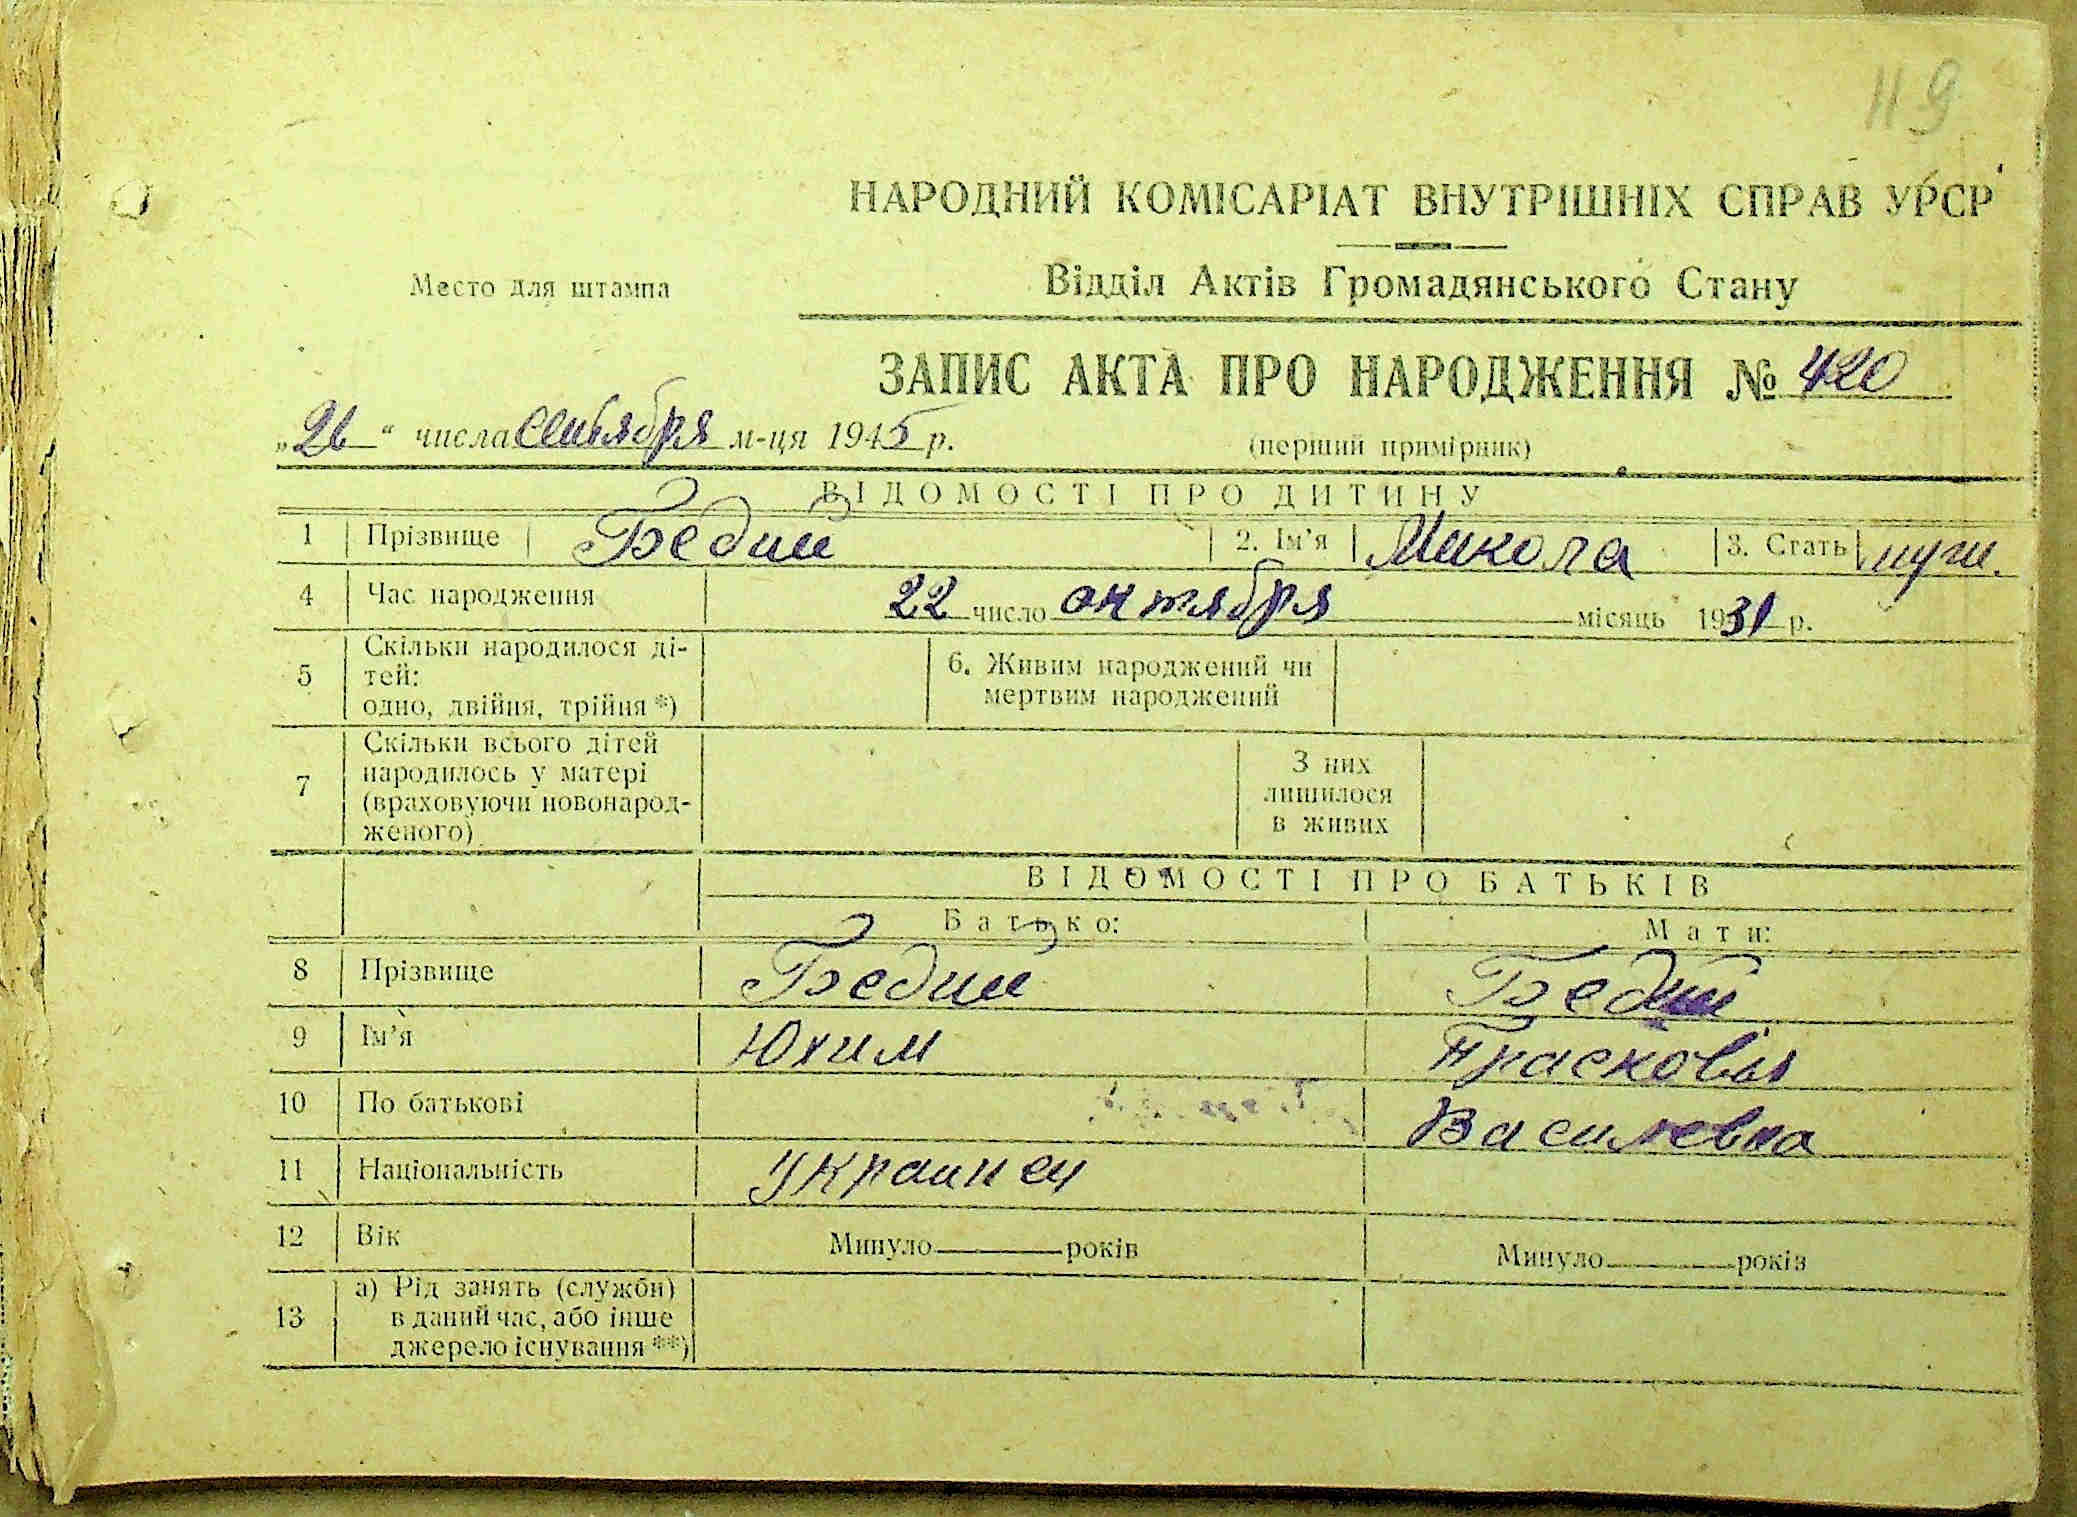 119
НАРОДНИЙ КОМІСАРІАТ ВНУТРІШНІХ СПРАВ УРСР
Место для штампа
Відділ Актів Громадянського Стану
ЗАПИС АКТА ПРО НАРОДЖЕННЯ № 420
„26“ числа сентября м-ця 1945 р.
(перший примірник)
ВІДОМОСТІ ПРО ДИТИНУ
1 Прізвище Бедий 2. Ім'я Микола 3. Стать муж.
4 Час народження 22 число октября місяць 1931 р.
5 Скільки народилося ді-
тей:
одно, двійня, трійня *)
6. Живим народжений чи
мертвим народжений
7 Скільки всього дітей
народилось у матері
(враховуючи новонарод-
женого)
З них
лишилося
в живих
ВІДОМОСТІ ПРО БАТЬКІВ
Батько: Мати:
8 Прізвище Бедий Бедий
9 Ім'я Юхим Прасковія
10 По батькові Василевна
11 Національність украинец
12 Вік Минуло років Минуло років
13 а) Рід занять (служби)
в даний час, або інше
джерело існування **)